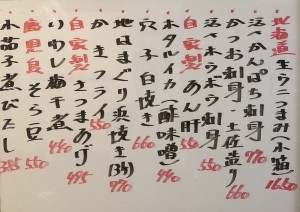 北海道 生ウニつまみ(小箱) 1650
活〆かんぱち刺身 770
かつお刺身 土佐造り 660
活〆ホウボウ刺身 550
自家製 あん肝 550
ホタルイカ(酢味噌) 440
穴子白焼き 660
地はまぐり浜焼き(3ケ) 770
かきフライ 550
自家製 さつまあげ 495
いわし梅干煮 440
鹿児島 そら豆 550
小茄子煮びたし 385